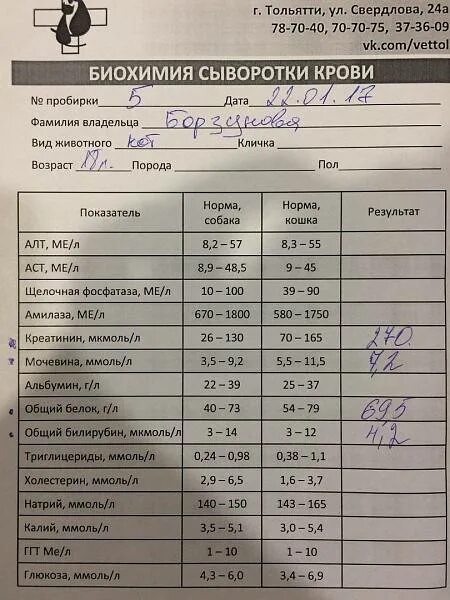 г. Тольятти, ул. Свердлова, 24а
78-70-40, 70-70-75, 37-36-09
vk.com/vettol
БИОХИМИЯ СЫВОРОТКИ КРОВИ
№ пробирки 5 Дата 22.01.17
Фамилия владельца Борзунова
Вид животного кот Кличка
Возраст Порода Пол
Показатель Норма, собака Норма, кошка Результат
АЛТ, МЕ/л 8,2 – 57 8,3 – 55
АСТ, МЕ/л 8,9 – 48,5 9 – 45
Щелочная фосфатаза, МЕ/л 10 – 100 39 – 90
Амилаза, МЕ/л 670 – 1800 580 – 1750
Креатинин, мкмоль/л 26 – 130 70 – 165 270
Мочевина, ммоль/л 3,5 – 9,2 5,5 – 11,5 7,2
Альбумин, г/л 22 – 39 25 – 37
Общий белок, г/л 40 – 73 54 – 79 69,5
Общий билирубин, мкмоль/л 3 – 14 3 – 12 4,2
Триглицериды, ммоль/л 0,24 – 0,98 0,38 – 1,1
Холестерин, ммоль/л 2,9 – 6,5 1,6 – 3,7
Натрий, ммоль/л 140 – 150 143 – 165
Калий, ммоль/л 3,5 – 5,1 3,0 – 5,4
ГГТ Ме/л 1 – 10 1 – 10
Глюкоза, ммоль/л 4,3 – 6,0 3,4 – 6,9